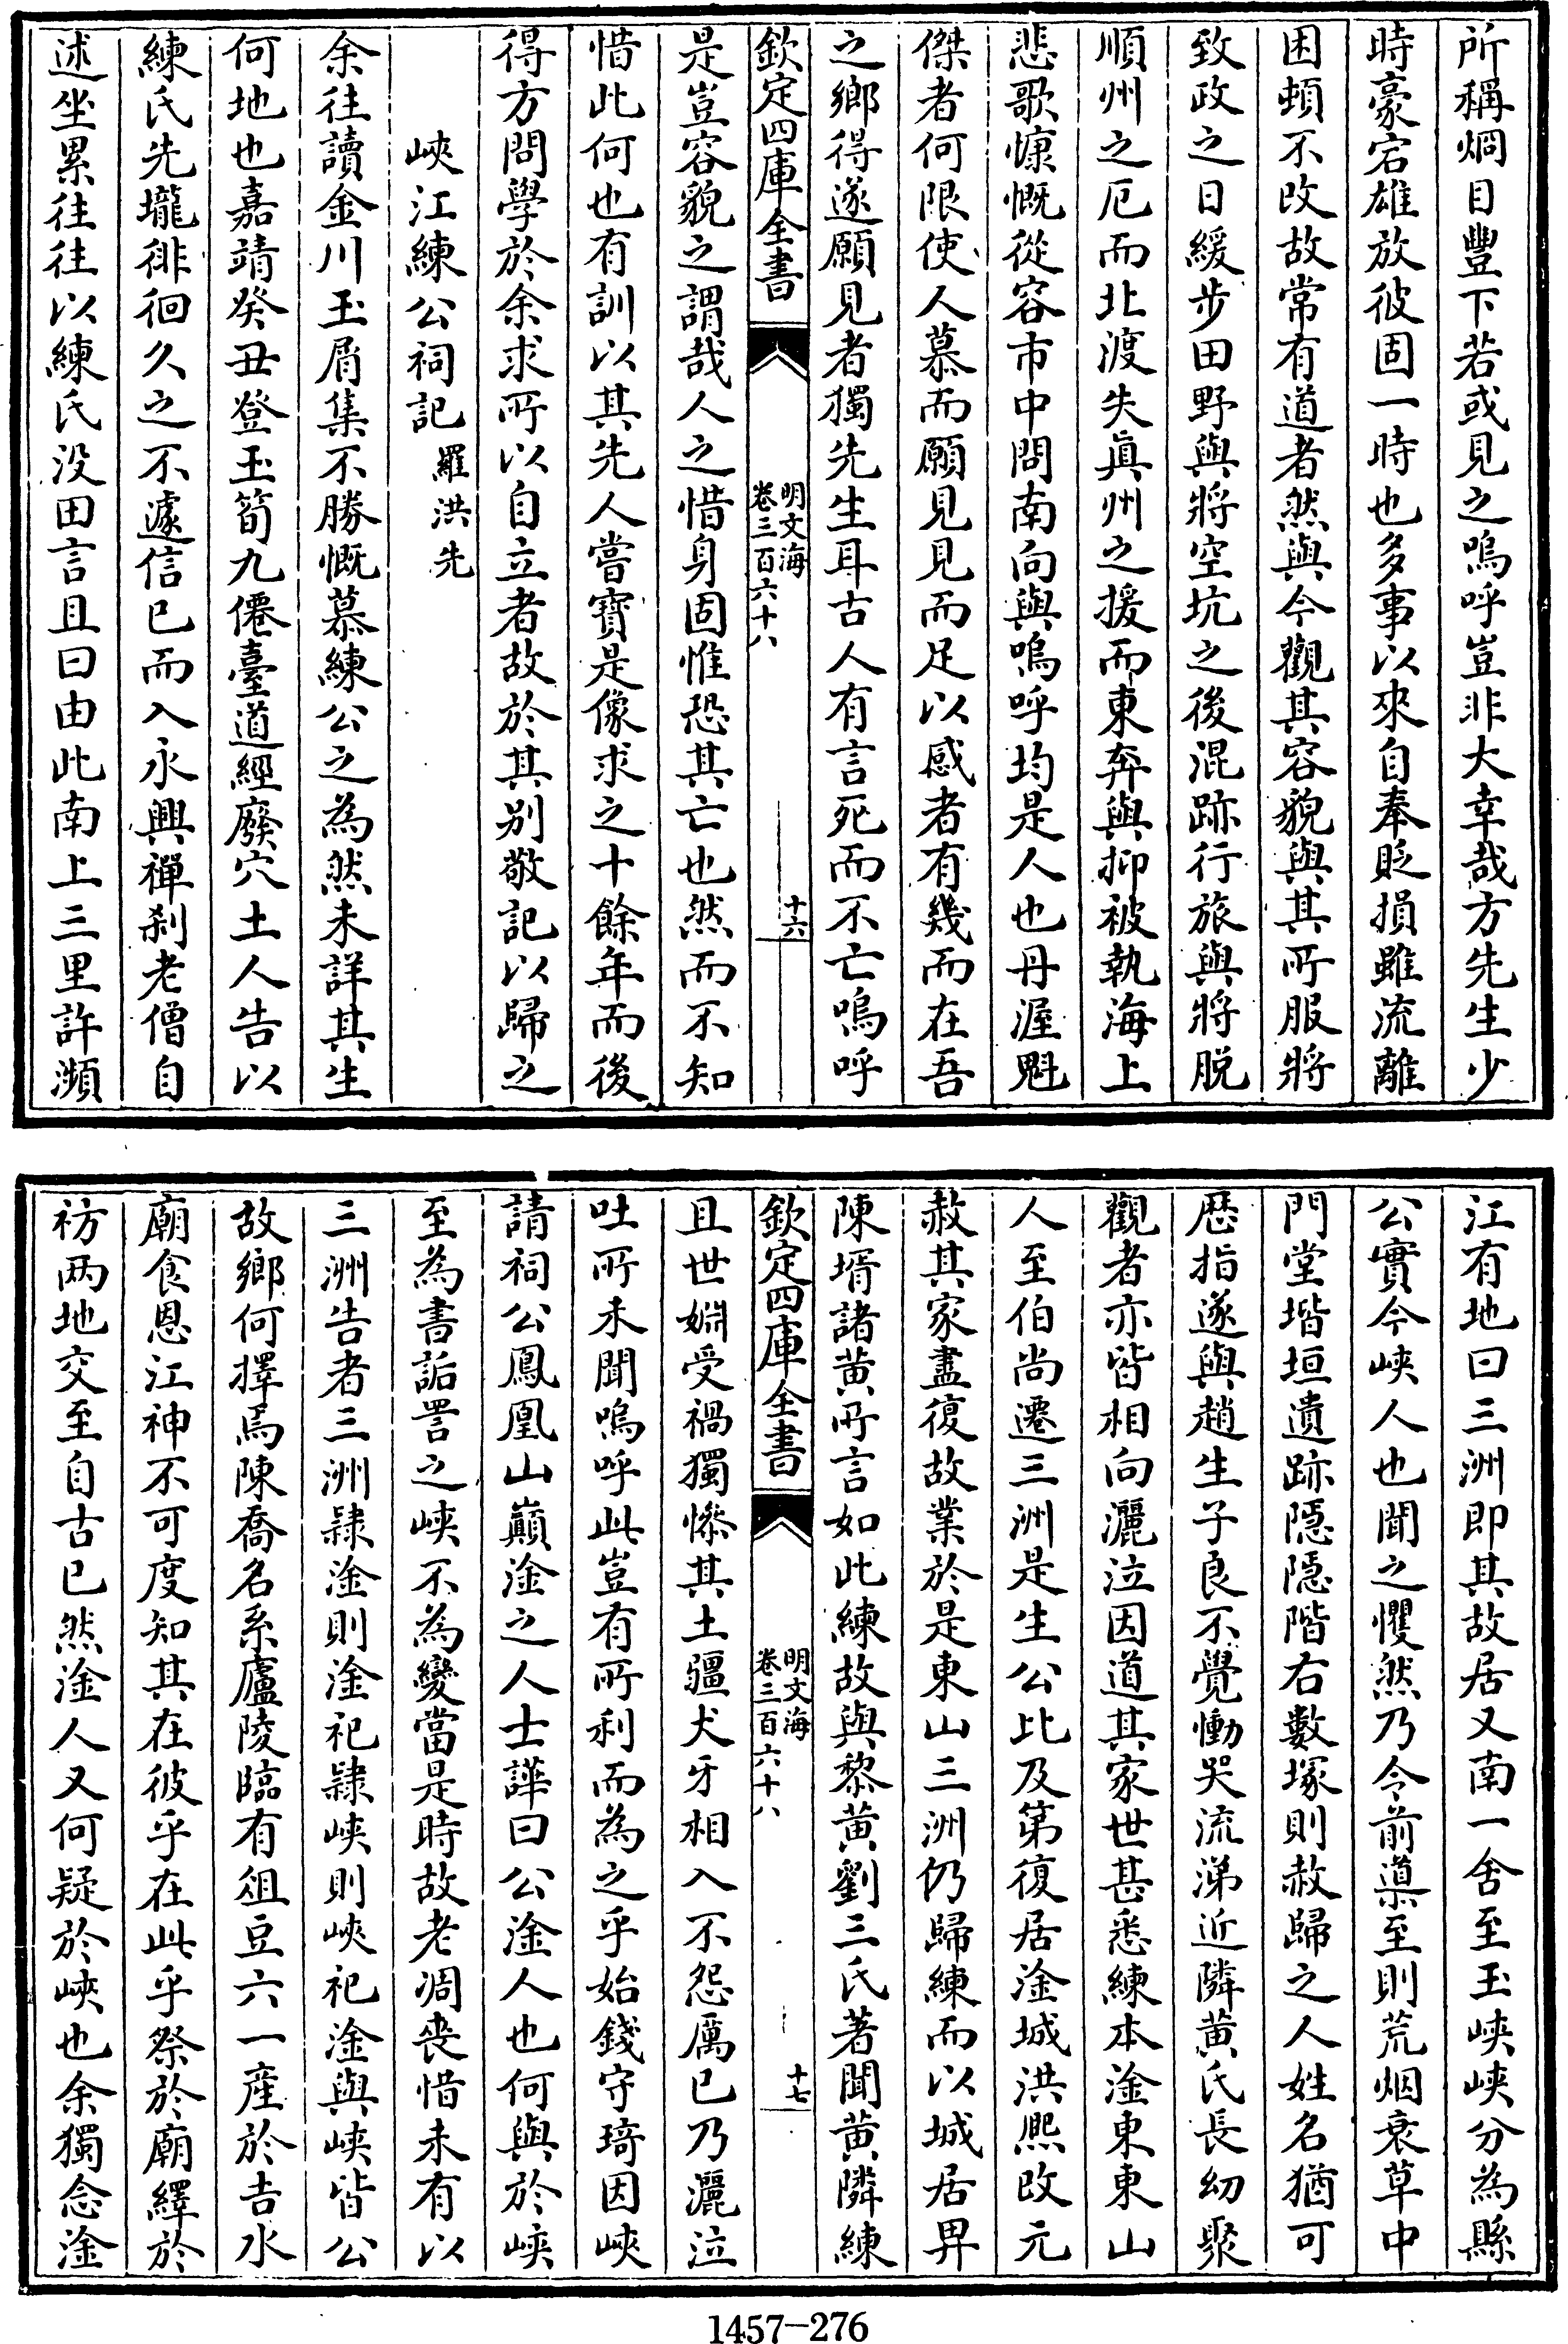 所稱烱目豐下若或見之嗚呼豈非大幸哉方先生少
時豪宕雄放彼固一時也多事以來自奉貶損雖流離
困頓不改故常有道者然與今觀其容貌與其所服將
致政之日緩步田野與將空坑之後混跡行旅與將脱
順州之厄而北渡失真州之援而東奔與抑被執海上
悲歌慷慨從容市中問南向與嗚呼均是人也丹渥魁
傑者何限使人慕而願見見而足以感者有幾而在吾
之鄉得遂願見者獨先生耳古人有言死而不亡嗚呼
欽定四庫全書
明文海
卷三百六十八
十六
是豈容貌之謂哉人之惜身固惟恐其亡也然而不知
惜此何也有訓以其先人嘗寶是像求之十餘年而後
得方問學於余求所以自立者故於其别敬記以歸之
峽江練公祠記 羅洪先
余往讀金川玉屑集不勝慨慕練公之為然未詳其生
何地也嘉靖癸丑登玉笥九僊臺道經廢穴土人告以
練氏先壠徘徊久之不遽信已而入永興禪刹老僧自
述坐累往往以練氏没田言且曰由此南上三里許瀕
江有地曰三洲即其故居又南一舍至玉峽峽分為縣
公實今峽人也聞之懼然乃令前導至則荒烟衰草中
門堂堦垣遺跡隠隠階右數塚則赦歸之人姓名猶可
歴指遂與趙生子良不覺慟哭流涕近隣黄氏長幼聚
觀者亦皆相向灑泣因道其家世甚悉練本淦東東山
人至伯尚遷三洲是生公比及第復居淦城洪熈改元
赦其家盡復故業於是東山三洲仍歸練而以城居畀
陳壻諸黄所言如此練故與黎黄劉三氏著聞黄隣練
欽定四庫全書
明文海
卷三百六十八
十七
且世婣受禍獨慘其土疆犬牙相入不怨厲已乃灑泣
吐所未聞嗚呼此豈有所利而為之乎始錢守琦因峽
請祠公鳳凰山巔淦之人士譁曰公淦人也何與於峽
至為書詬詈之峽不為變當是時故老凋喪惜未有以
三洲告者三洲隷淦則淦祀隷峽則峽祀淦與峽皆公
故鄉何擇焉陳喬名系廬陵臨有俎豆六一産於吉水
廟食恩江神不可度知其在彼乎在此乎祭於廟繹於
祊两地交至自古已然淦人又何疑於峽也余獨念淦
1457-276